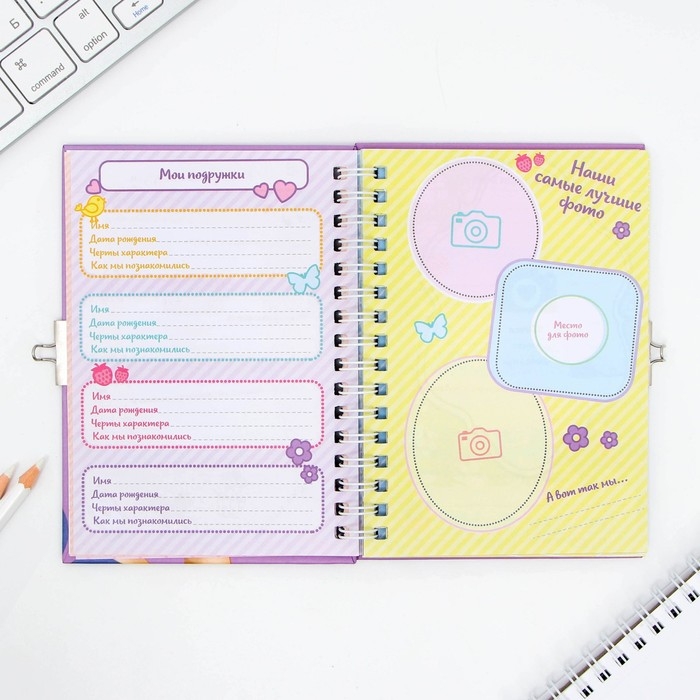 Б
alt
option
Home
⌘
command
Мои подружки
Имя
Дата рождения
Черты характера
Как мы познакомились
Имя
Дата рождения
Черты характера
Как мы познакомились
Имя
Дата рождения
Черты характера
Как мы познакомились
Имя
Дата рождения
Черты характера
Как мы познакомились
Наши
самые лучшие
фото
Место
для фото
А вот так мы...